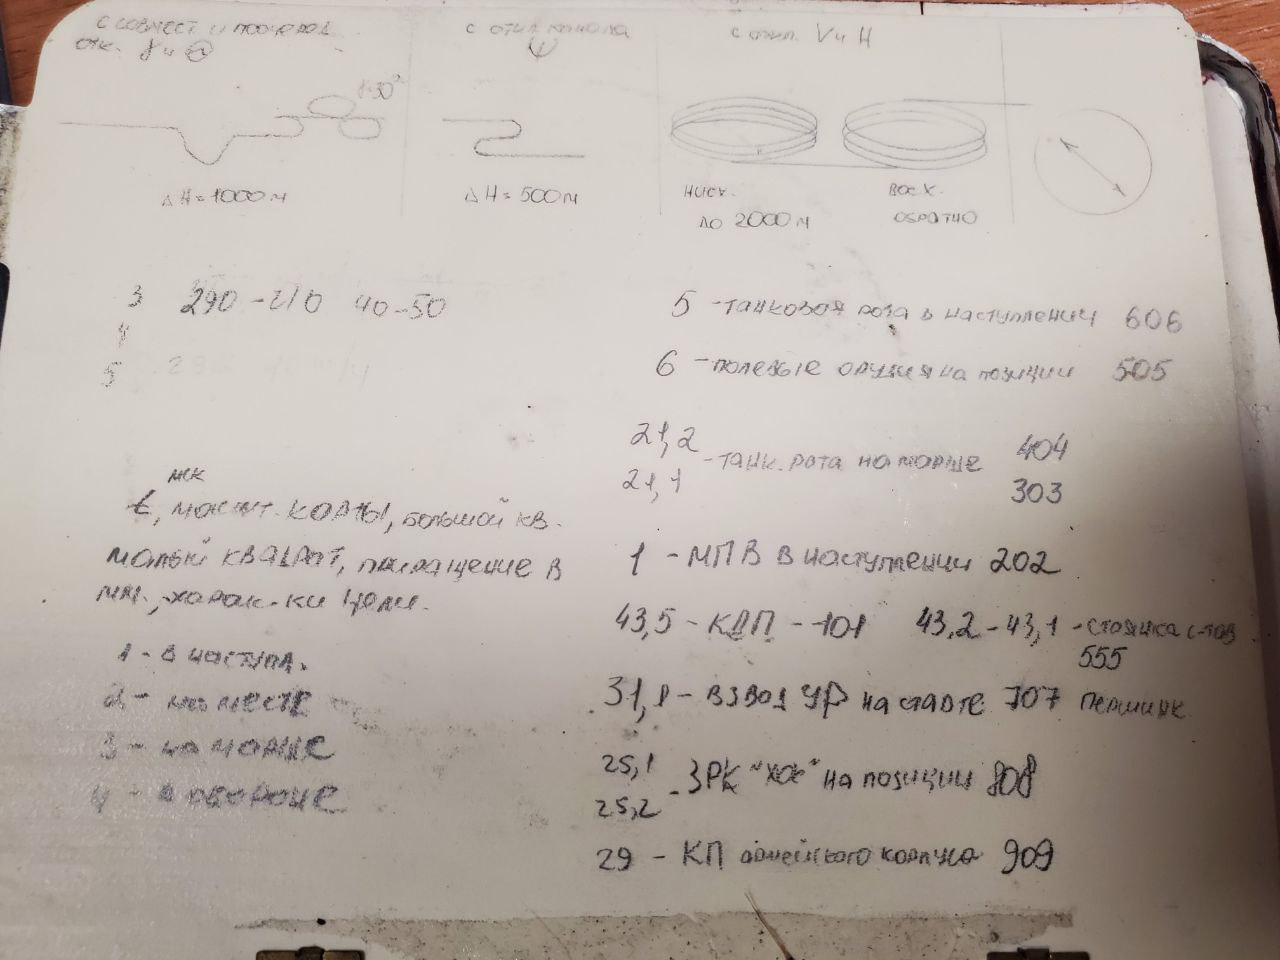 с совмест и поочеред
отк. γ и Θ
γ=30°
ΔH=1000м
с откл канала
ψ
ΔH=500м
с откл. V и H
нисх.
до 2000м
восх.
обратно
3 290-210 40-50
4
5
мк
t, масшт. карты, большой кв.
малый квадрат, приращение в
мм., харак-ки цели.
1 - в наступл.
2 - на месте
3 - на марше
4 - в обороне
5 - танковая рота в наступлении 606
6 - полевые орудия на позиции 505
21,2
21,1
- танк. рота на марше 404
303
1 - МПВ в наступлении 202
43,5 - КДП - 101 43,2 - 43,1 - стоянка с-тов
555
31,1 - взвод УР на старте 707 першинк
25,1
25,2
- ЗРК "ХОК" на позиции 808
29 - КП армейского корпуса 909